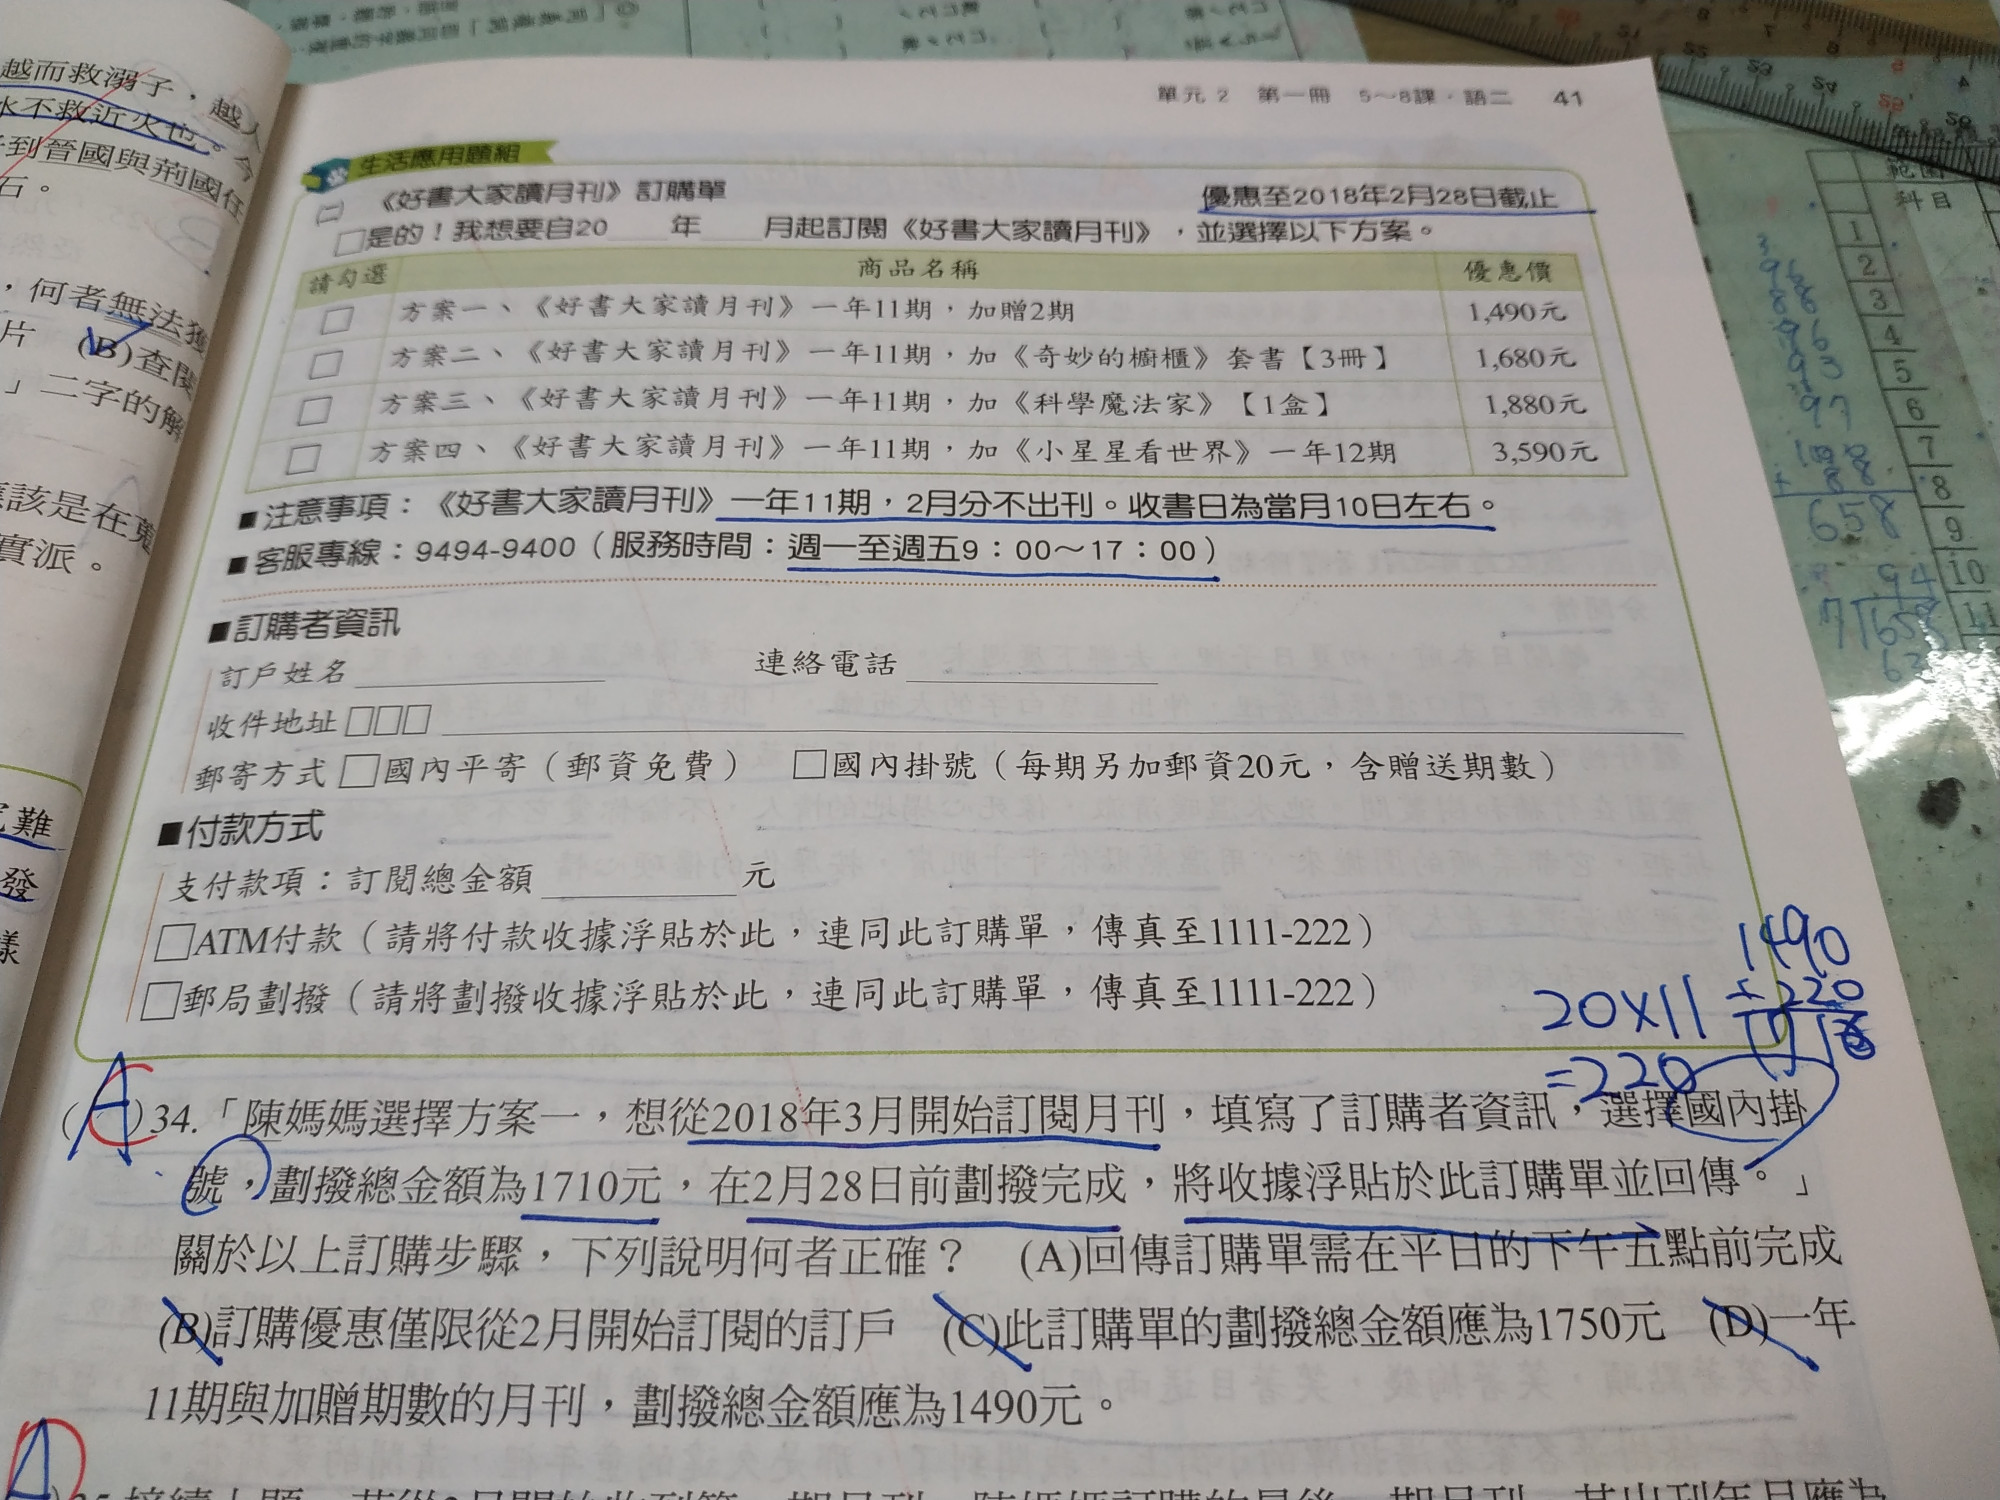 越而救溺子,越人
水不救近火也。今
到晉國與荊國任
石。
,何者無法獲
片 (B)查閱
」二字的解
應該是在蒐
實派。
難
發
樣
單元 2 第一冊 5~8課・語二 41
生活應用題組
《好書大家讀月刊》訂購單 優惠至2018年2月28日截止
□是的!我想要自20____年____月起訂閱《好書大家讀月刊》,並選擇以下方案。
請勾選 商品名稱 優惠價
□ 方案一、《好書大家讀月刊》一年11期,加贈2期 1,490元
□ 方案二、《好書大家讀月刊》一年11期,加《奇妙的櫥櫃》套書【3冊】 1,680元
□ 方案三、《好書大家讀月刊》一年11期,加《科學魔法家》【1盒】 1,880元
□ 方案四、《好書大家讀月刊》一年11期,加《小星星看世界》一年12期 3,590元
■注意事項:《好書大家讀月刊》一年11期,2月分不出刊。收書日為當月10日左右。
■客服專線:9494-9400(服務時間:週一至週五9:00~17:00)
■訂購者資訊
訂戶姓名____________ 連絡電話____________
收件地址□□□____________
郵寄方式□國內平寄(郵資免費) □國內掛號(每期另加郵資20元,含贈送期數)
■付款方式
支付款項:訂閱總金額____________元
□ATM付款(請將付款收據浮貼於此,連同此訂購單,傳真至1111-222)
□郵局劃撥(請將劃撥收據浮貼於此,連同此訂購單,傳真至1111-222)
1490
20×11 +220
=220
(A)34.「陳媽媽選擇方案一,想從2018年3月開始訂閱月刊,填寫了訂購者資訊,選擇國內掛
號,劃撥總金額為1710元,在2月28日前劃撥完成,將收據浮貼於此訂購單並回傳。」
關於以上訂購步驟,下列說明何者正確? (A)回傳訂購單需在平日的下午五點前完成
(B)訂購優惠僅限從2月開始訂閱的訂戶 (C)此訂購單的劃撥總金額應為1750元 (D)一年
11期與加贈期數的月刊,劃撥總金額應為1490元。
範圍
科目
1
2
3
4
5
6
7
8
9
10
11
658
94